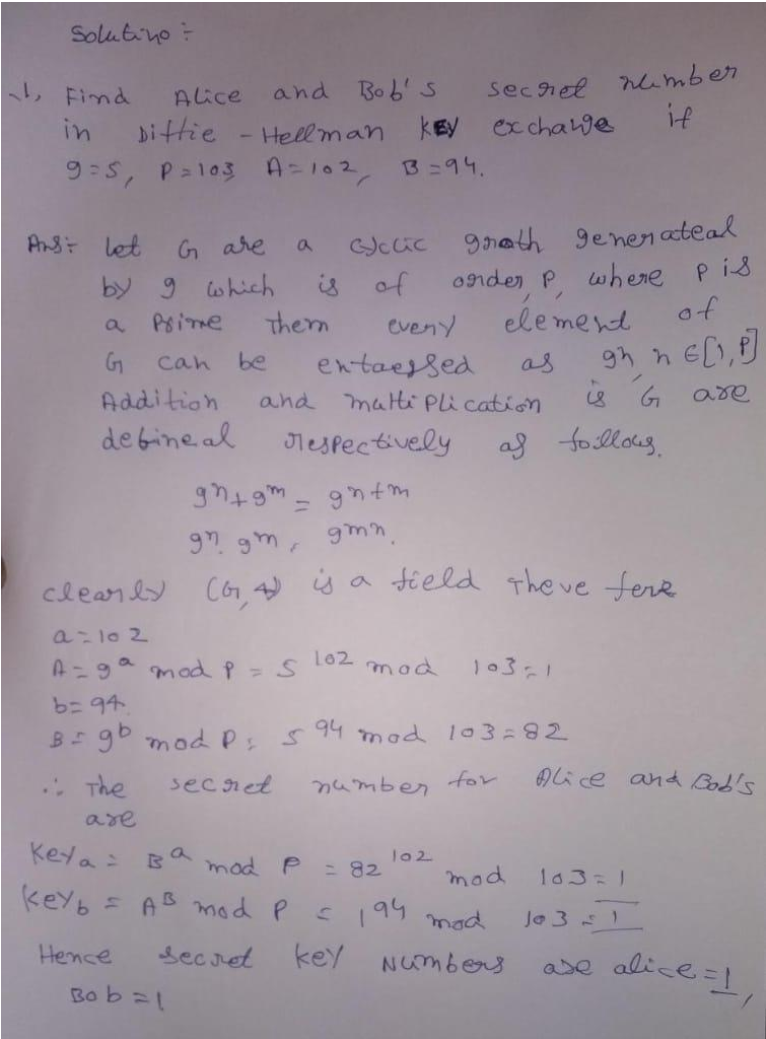 Solutino :-
1, Find Alice and Bob's secret number
in Diffie - Hellman KEY exchange if
g=5, P=103, A=102, B=94.
Ans:- let G are a cyclic groth generateal
by g which is of order, P, where P is
a Prime them every element of
G can be extaessed as gn, n ∈ [1, P]
Addition and multiplication is G are
defineal respectively as follows.
gn + gm = gn+m
gn. gm, gmn.
clearly (G, +) is a field Theve fere
a=102
A = g^a mod P = 5^102 mod 103=1
b=94.
B = g^b mod P = 5^94 mod 103=82
∴ The secret number for Alice and Bob's
are
Keya = B^a mod P = 82^102 mod 103=1
Keyb = A^B mod P = 1^94 mod 103=1
Hence secret key Numbers are alice=1,
Bob=1